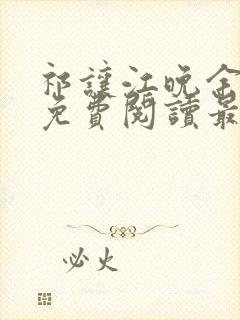 祁讓江晚全
免費閱讀最
必火